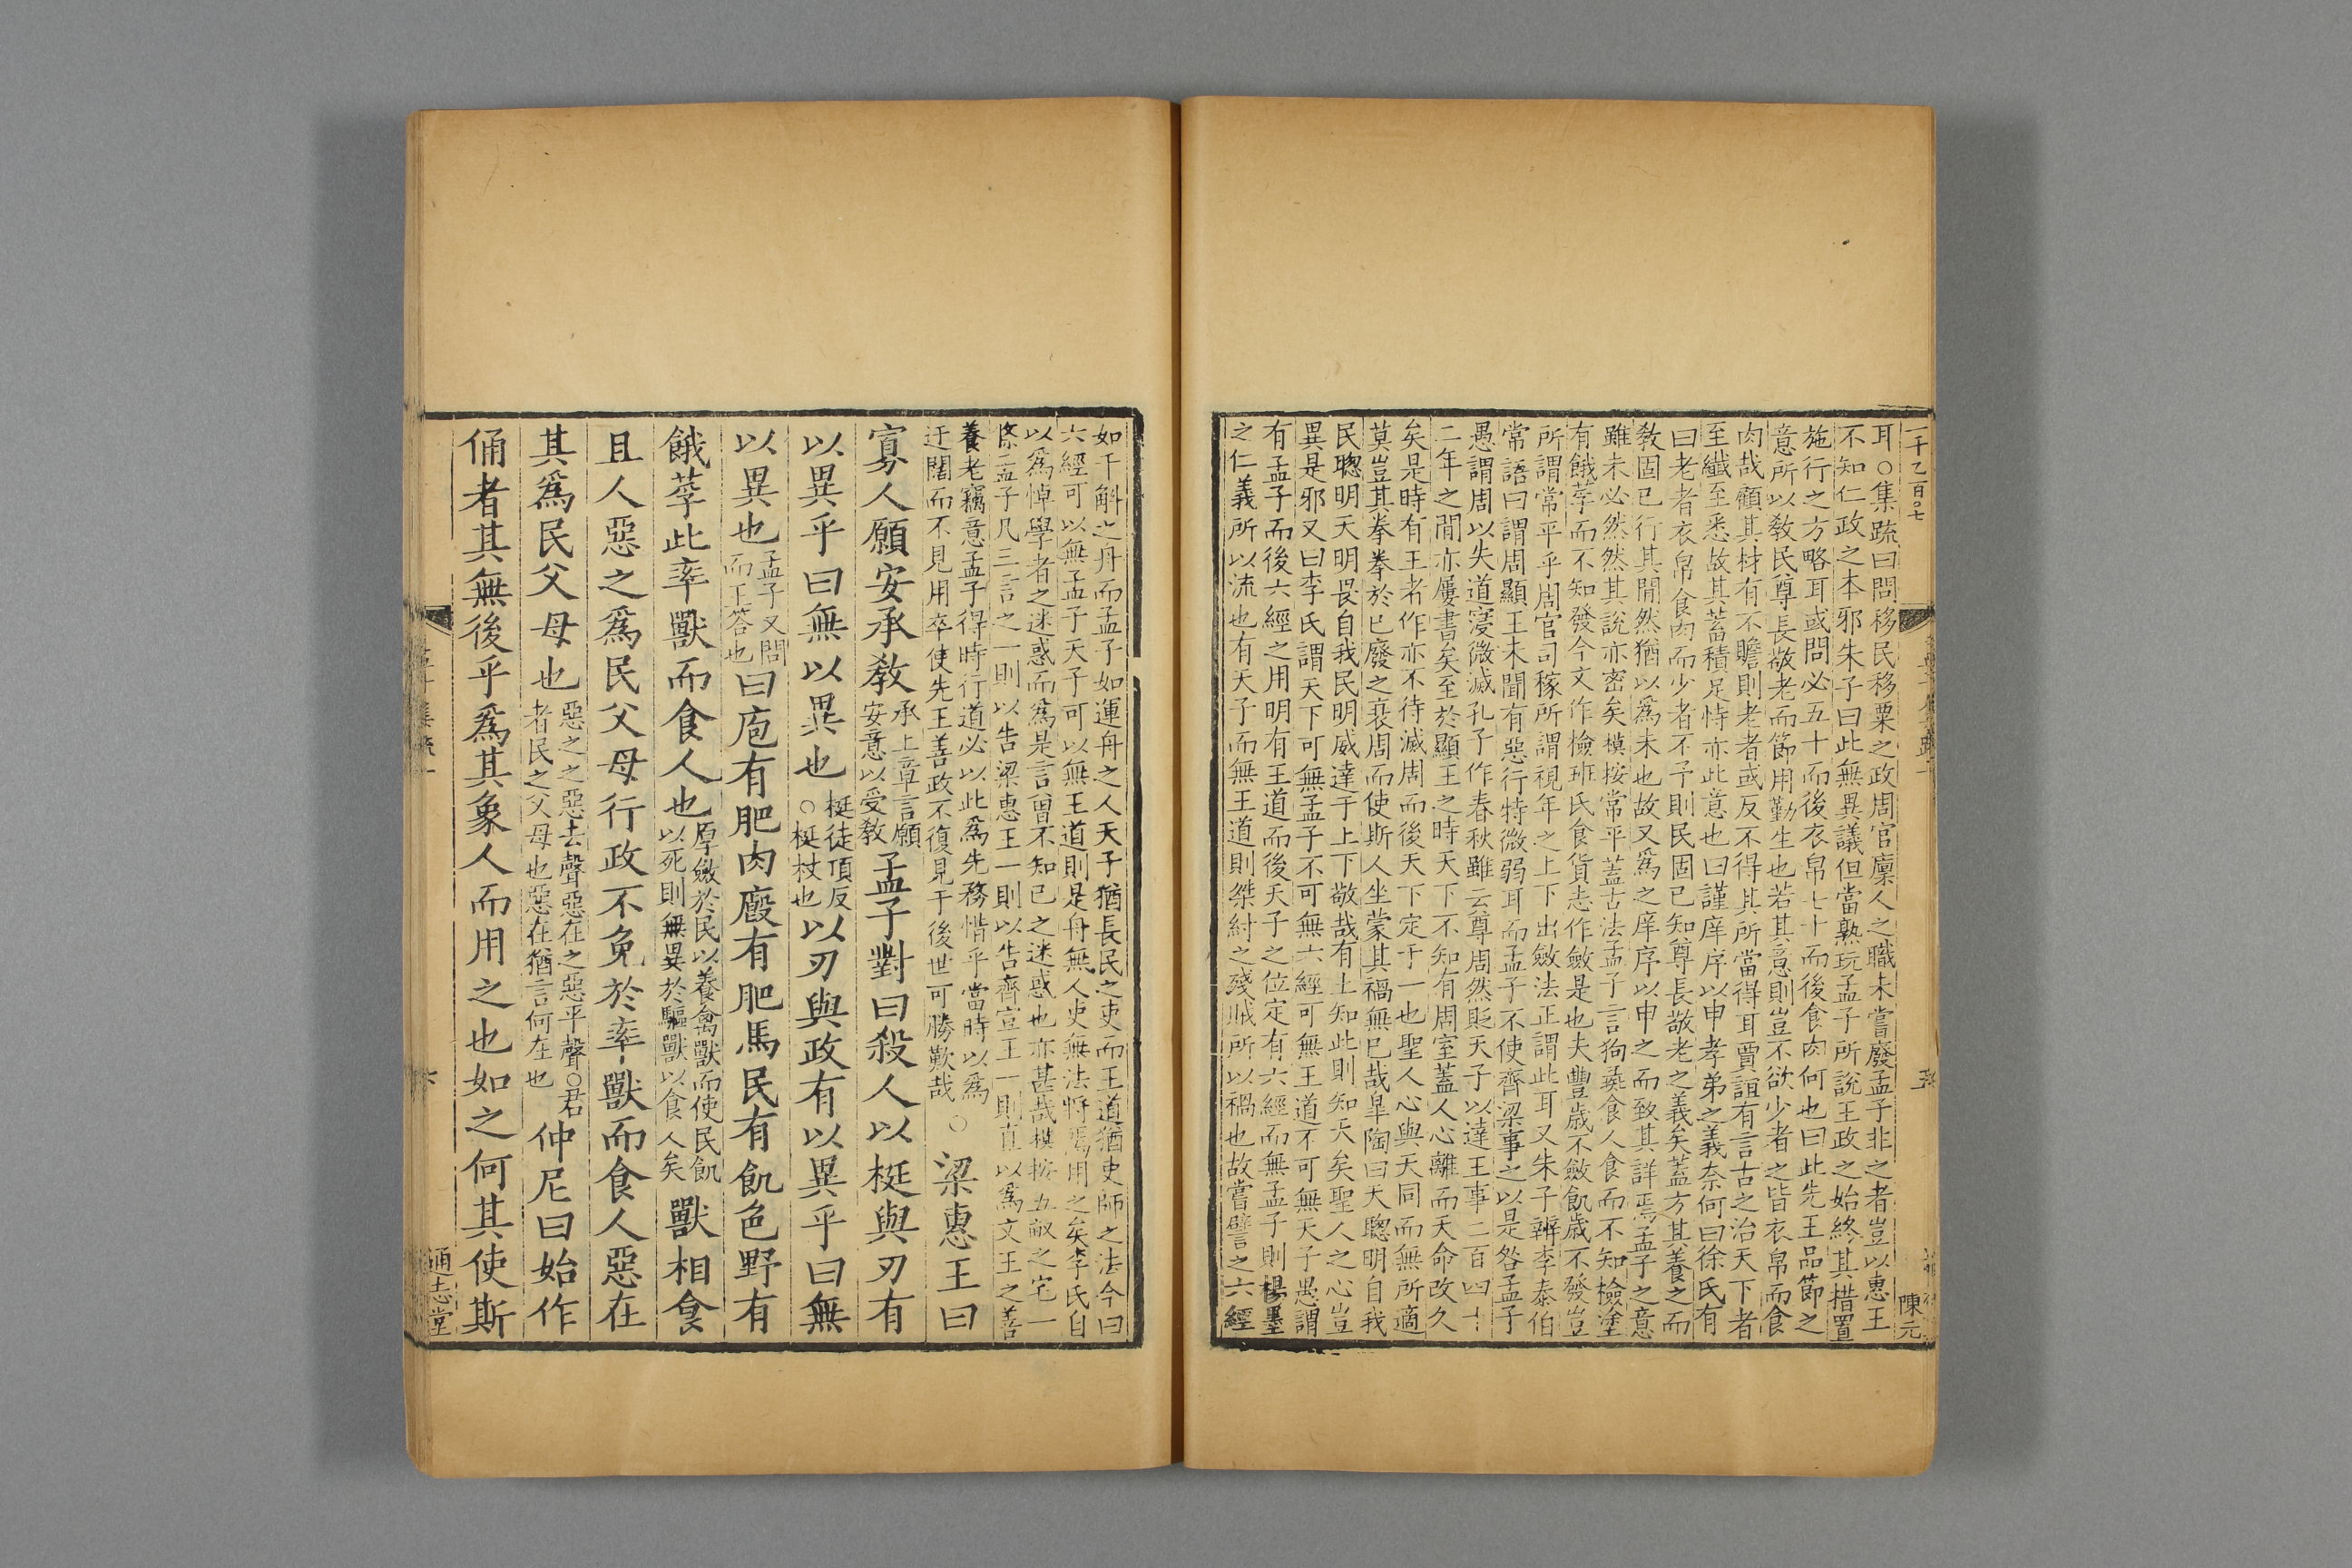 耳○集疏曰問移民移粟之政周官廩人之職未嘗廢孟子非之者豈以惠王
不知仁政之本邪朱子曰此無異議但當熟玩孟子所說王政之始終其措置
施行之方略耳或問必五十而後衣帛七十而後食肉何也曰此先王品節之
意所以敎民尊長敬老而節用勤生也若其意則豈不欲少者之皆衣帛而食
肉哉顧其材有不贍則老者或反不得其所當得耳賈誼有言古之治天下者
至纖至悉故其蓄積足恃亦此意也曰謹庠序以申孝弟之義奈何曰徐氏有
曰老者衣帛食肉而少者不予則民固已知尊長敬老之義矣蓋方其養之而
敎固已行其閒然猶以爲未也故又爲之庠序以申之而致其詳焉孟子之意
雖未必然然其說亦密矣模按常平蓋古法孟子言狗彘食人食而不知檢塗
有餓莩而不知發今文作檢班氏食貨志作斂是也夫豐歲不斂飢歲不發豈
所謂常平乎周官司稼所謂視年之上下出斂法正謂此耳又朱子辨李泰伯
常語曰謂周顯王未聞有惡行特微弱耳而孟子不使齊梁事之以是咎孟子
愚謂周以失道寖微滅孔子作春秋雖云尊周然貶天子以達王事二百四十
二年之閒亦屢書矣至於顯王之時天下不知有周室蓋人心離而天命改久
矣是時有王者作亦不待滅周而後天下定于一也聖人心與天同而無所適
莫豈其拳拳於已廢之衰周而使斯人坐蒙其禍無已哉皐陶曰天聦明自我
民聦明天明畏自我民明威達于上下敬哉有土知此則知天矣聖人之心豈
異是邪又曰李氏謂天下可無孟子不可無六經可無王道不可無天子愚謂
有孟子而後六經之用明有王道而後天子之位定有六經而無孟子則楊墨
之仁義所以流也有天子而無王道則桀紂之殘賊所以禍也故嘗譬之六經
陳元
如千斛之舟而孟子如運舟之人天子猶長民之吏而王道猶吏師之法今曰
六經可以無孟子天子可以無王道則是舟無人吏無法將焉用之矣李氏自
以爲悼學者之迷惑而爲是言曾不知已之迷惑也亦甚哉模按五畝之宅一
條孟子凡三言之一則以告梁惠王一則以告齊宣王一則直以爲文王之善
養老竊意孟子得時行道必以此爲先務惜乎當時以爲
迂闊而不見用卒使先王善政不復見于後世可勝歎哉
○梁惠王曰
寡人願安承敎
承上章言願
安意以受敎
孟子對曰殺人以梃與刃有
以異乎曰無以異也
梃徒頂反
○梃杖也
以刃與政有以異乎曰無
以異也
孟子又問
而王答也
曰庖有肥肉廄有肥馬民有飢色野有
餓莩此率獸而食人也
厚斂於民以養禽獸而使民飢
以死則無異於驅獸以食人矣
獸相食
且人惡之爲民父母行政不免於率獸而食人惡在
其爲民父母也
惡之之惡去聲惡在之惡平聲○君
者民之父母也惡在猶言何在也
仲尼曰始作
俑者其無後乎爲其象人而用之也如之何其使斯
六
通志堂